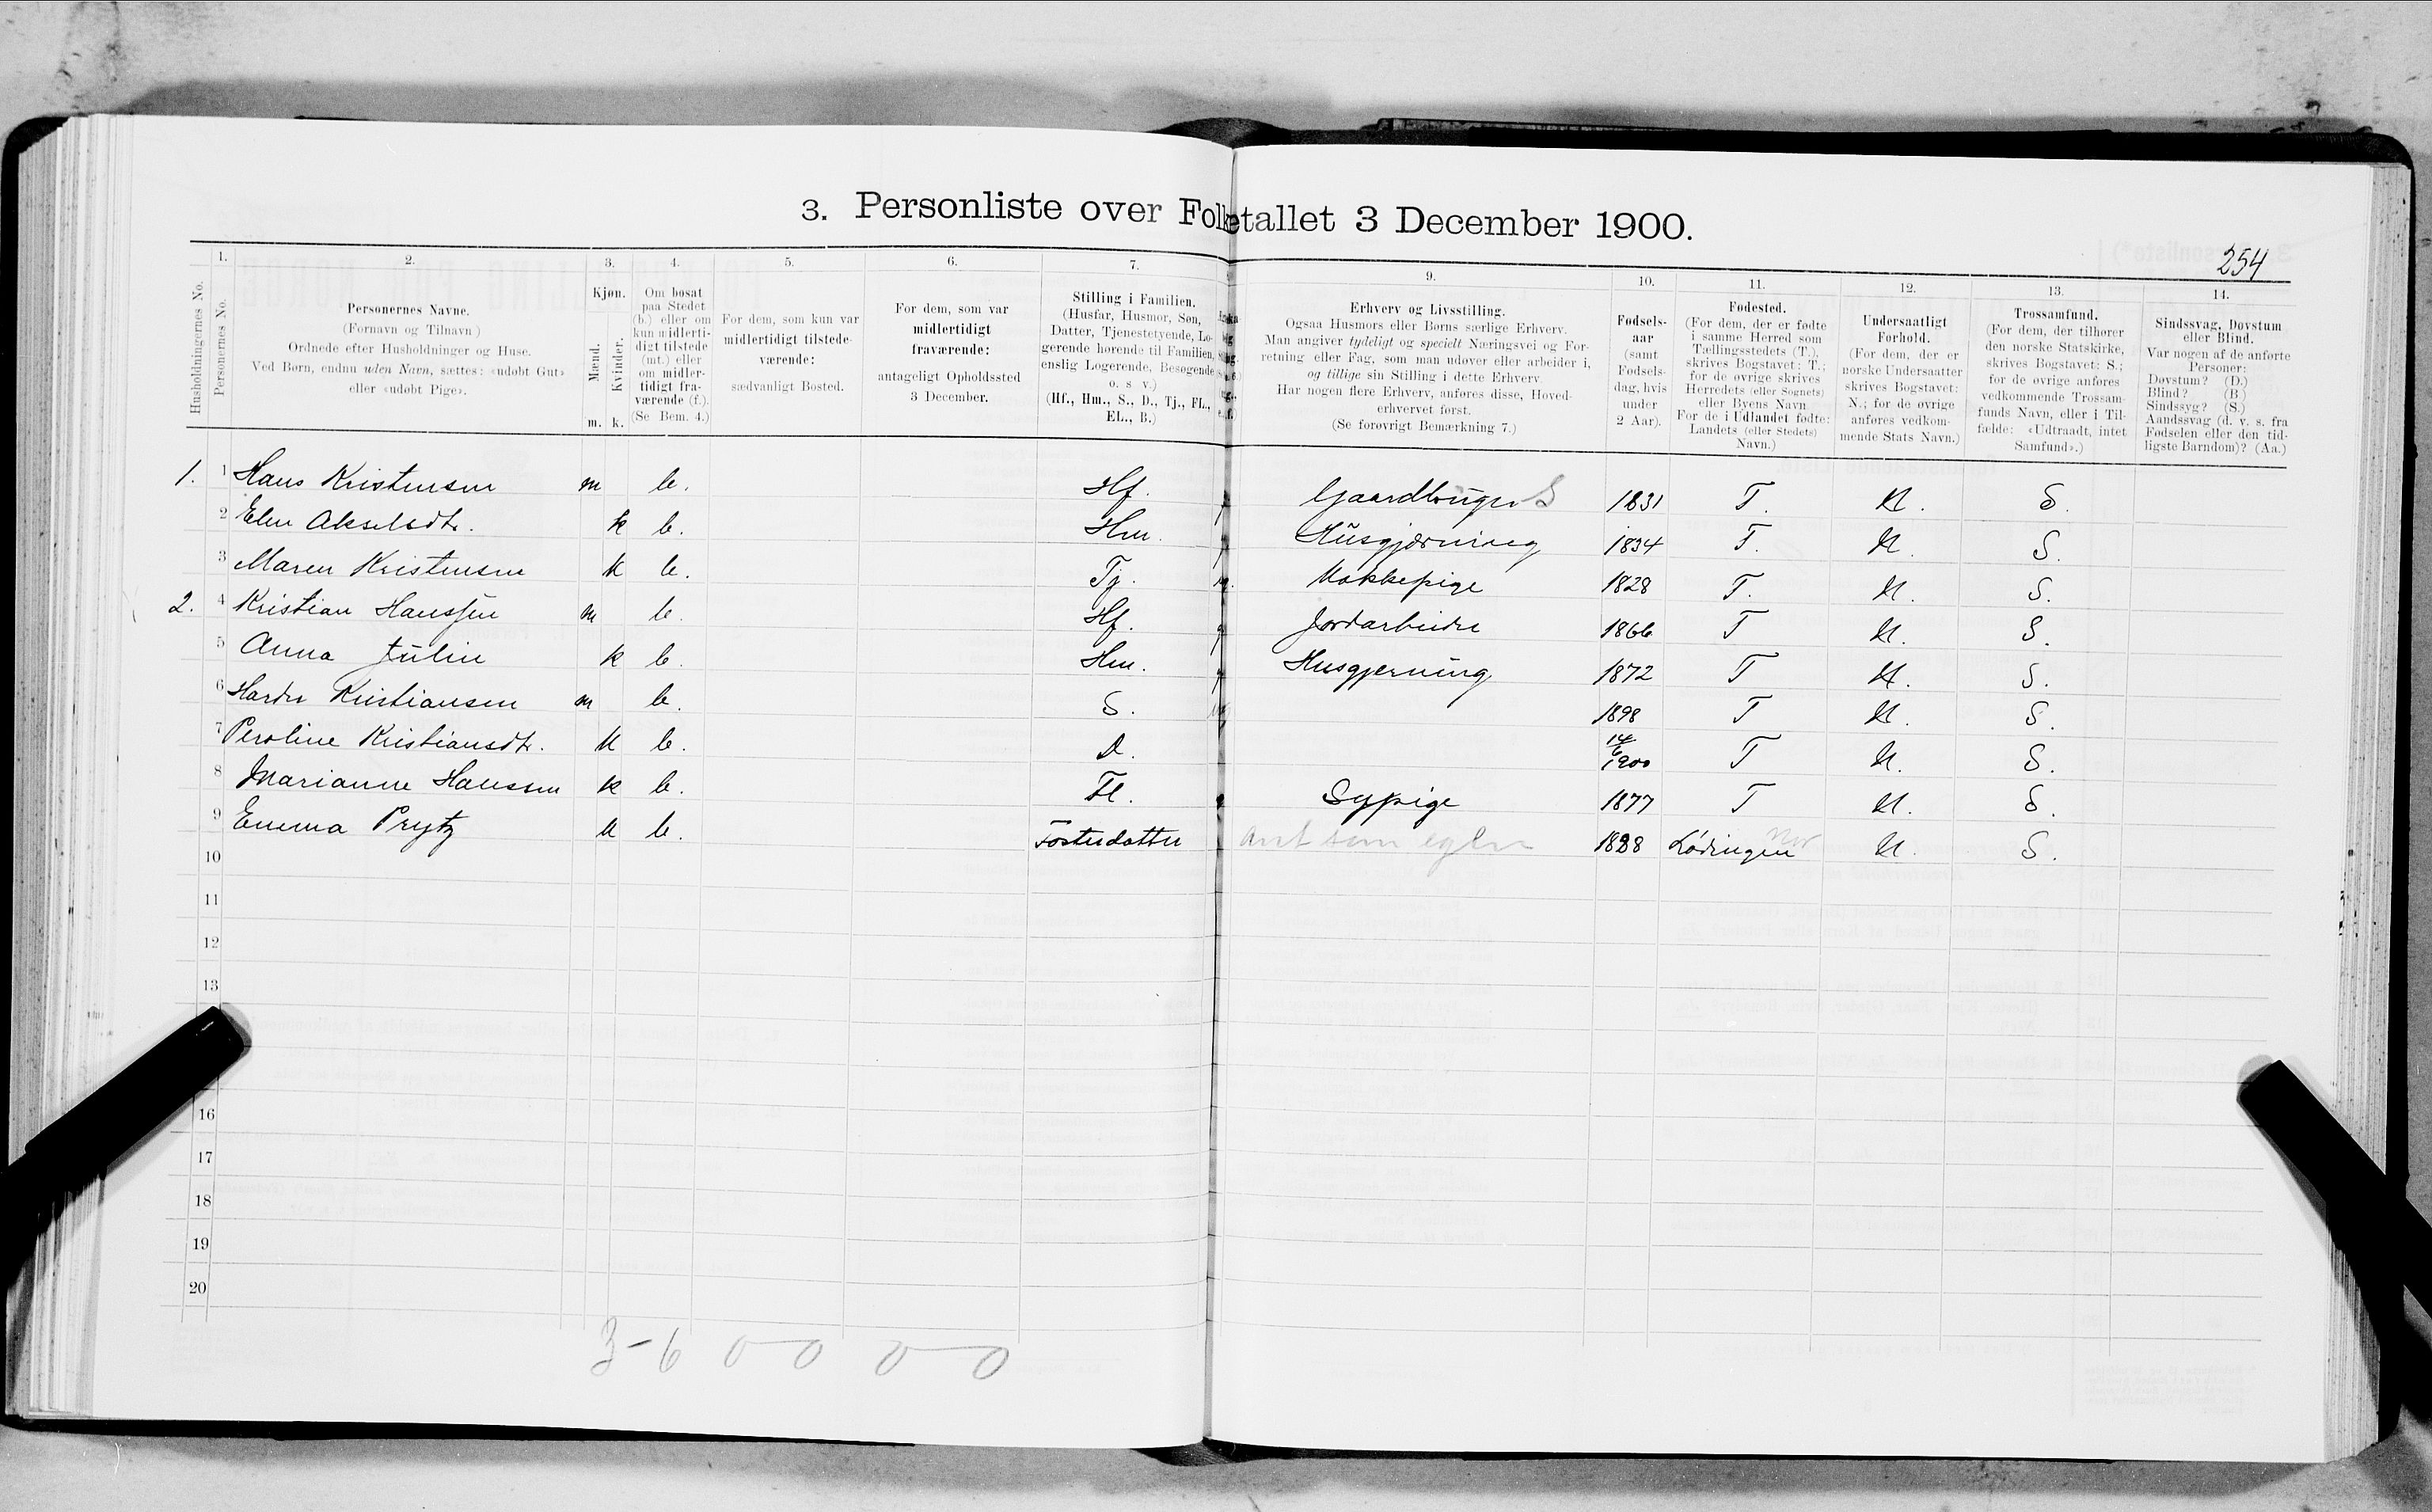 3. Personliste over Folketallet 3 December 1900.
254
1. 2. 3. 4. 5. 6. 7. 9. 10. 11. 12. 13. 14.
Husholdningernes No.
Personernes No.
Personernes Navne.
(Fornavn og Tilnavn)
Ordnede efter Husholdninger og Huse.
Ved Børn, endnu uden Navn, sættes: «udøbt Gut»
eller «udøbt Pige».
Kjøn.
Mænd.
Kvinder.
m. k.
Om bosat
paa Stedet
(b.) eller om
kun midlerti-
digt tilstede
(mt.) eller
om midler-
tidigt fra-
værende (f.).
(Se Bem. 4.)
For dem, som kun var
midlertidigt tilstede-
værende:
sædvanligt Bosted.
For dem, som var
midlertidigt
fraværende:
antageligt Opholdssted
3 December.
Stilling i Familien.
(Husfar, Husmor, Søn,
Datter, Tjenestetyende, Lo-
gerende hørende til Familien,
enslig Logerende, Besøgende
o. s v.)
(Hf., Hm., S., D., Tj., FL.,
EL., B.)
Erhverv og Livsstilling.
Ogsaa Husmors eller Børns særlige Erhverv.
Man angiver tydeligt og specielt Næringsvei og For-
retning eller Fag, som man udøver eller arbeider i,
og tillige sin Stilling i dette Erhverv.
Har nogen flere Erhverv, anføres disse, Hoved-
erhvervet først.
(Se forøvrigt Bemærkning 7.)
Fødsels-
aar
(samt
Fødsels-
dag, hvis
under
2 Aar).
Fødested.
(For dem, der er fødte
i samme Herred som
Tællingsstedets (T.),
skrives Bogstavet: T.;
for de øvrige skrives
Herredets (eller Sognets)
eller Byens Navn
For de i Udlandet fødte:
Landets (eller Stedets)
Navn.)
Undersaatligt
Forhold.
(For dem, der er
norske Undersaatter
skrives Bogstavet:
N.; for de øvrige
anføres vedkom-
mende Stats Navn.)
Trossamfund.
(For dem, der tilhører
den norske Statskirke,
skrives Bogstavet: S.;
for de øvrige anføres
vedkommende Trossam-
funds Navn, eller i Til-
fælde: «Udtraadt, intet
Samfund».)
Sindssvag, Døvstum
eller Blind.
Var nogen af de anførte
Personer:
Døvstum? (D.)
Blind? (B)
Sindssyg? (S.)
Aandssvag (d. v. s. fra
Fødselen eller den tid-
ligste Barndom)? (Aa.)
1. 1 Hans Kristensen m b. Hf. Gaardbruger S 1831 T. N. S.
2 Elen Akselsdtr. k b. Hm. Husgjerning 1834 T. N. S.
3 Maren Kristensen k b. Tj. Kokkepige 1828 T. N. S.
2. 4 Kristian Hanssen m b. Hf. Jordarbeider 1866 T N. S.
5 Anna Julin k b. Hm. Husgjerning 1872 T N. S.
6 Harder Kristiansen m b. S. 1898 T N. S.
7 Peroline Kristiansdtr. k b. D. 14/6 1900 T N. S.
8 Marianne Hanssen k b. Fl. Sypige 1877 T N. S.
9 Emma Prytz k b. Fosterdatter 1888 Lødingen N. S.
10
11
12
13
16
17
18
19
20
3-6 0-0 0-0